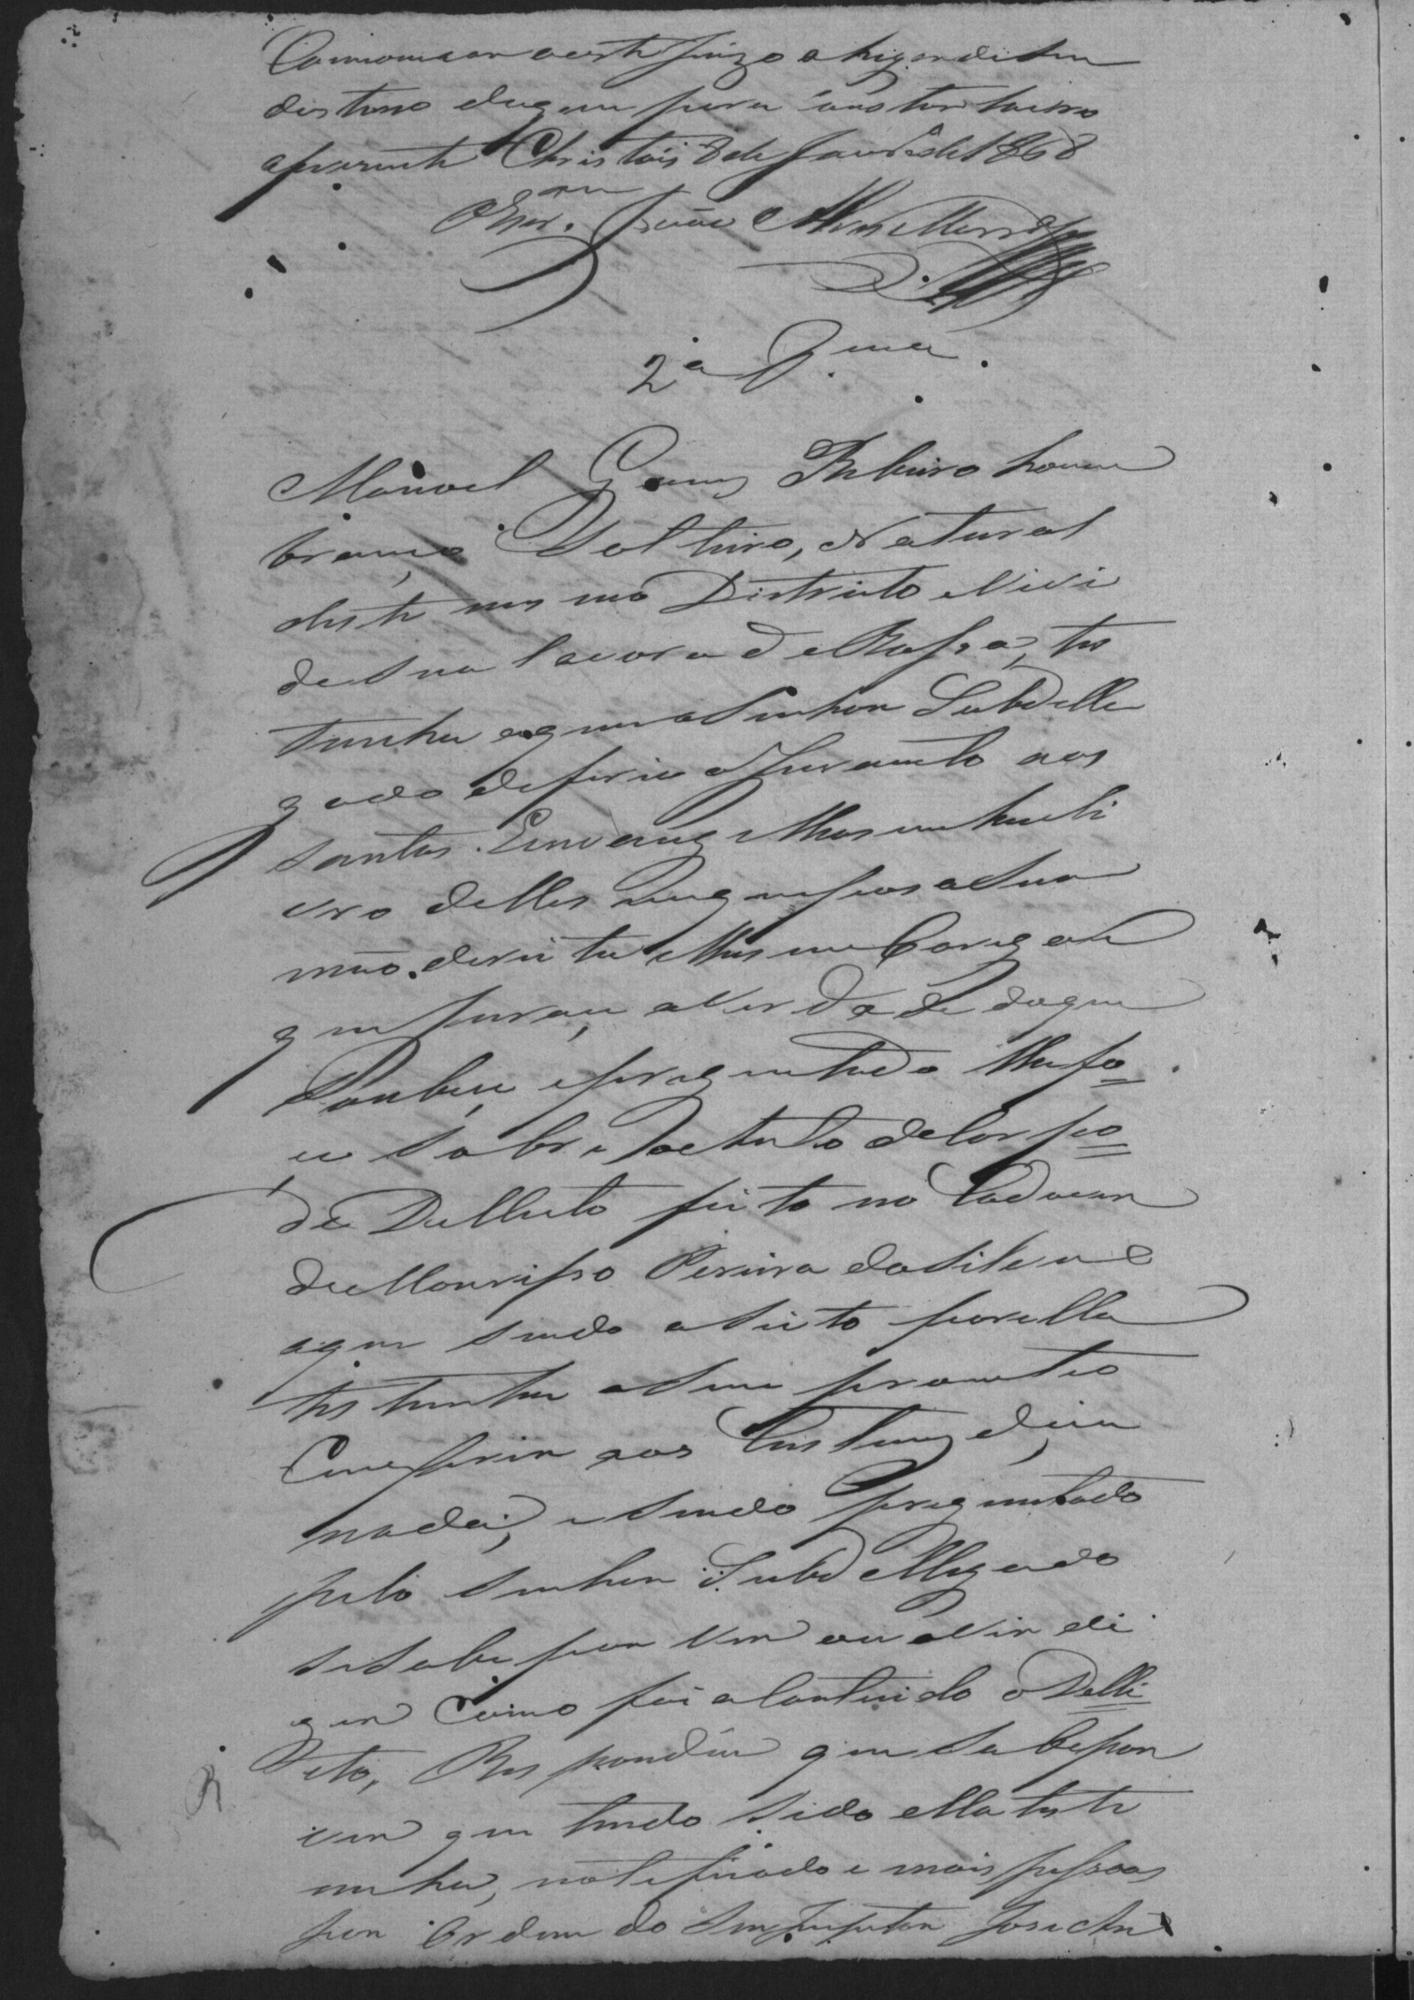 Communicar a este juizo o lugar de seu
destino e do que para constar lavro
a presente Christais 8 de Janr.o de 1868
O Escr.am João Alves
2.a T.ma
Manoel Gomes Ribeiro homem
branco Solteiro, Natural
deste mesmo Districto e Vive
de sua lavora de Rossa, tes
tunha a quem o Senhor Subdelle
gado deferio o Juramento aos
Santos Envangelhos em hum li
vro delles em que pos a Sua
mão direita e lhes em Carregou
que jurase a Verdade do que
Soubese e preguntado lhe fo
ce sobre o actuto de Corpo
de Dellicto feito no Cadaver
de Pereira da Silva e
a que sendo aseito por ella
testunha asim prometeo
Cumprir aos Custumes dice
nada, e sendo preguntado
pelo Senhor Subdellegado
se sabe por Ver ou ovir di
zer Como foi a Contecido o Delli
cto, Respondeu que sabe por
ver que tendo sido ella teste
munha, notefícado e mais pessoas
por Ordem do Inspetor José An